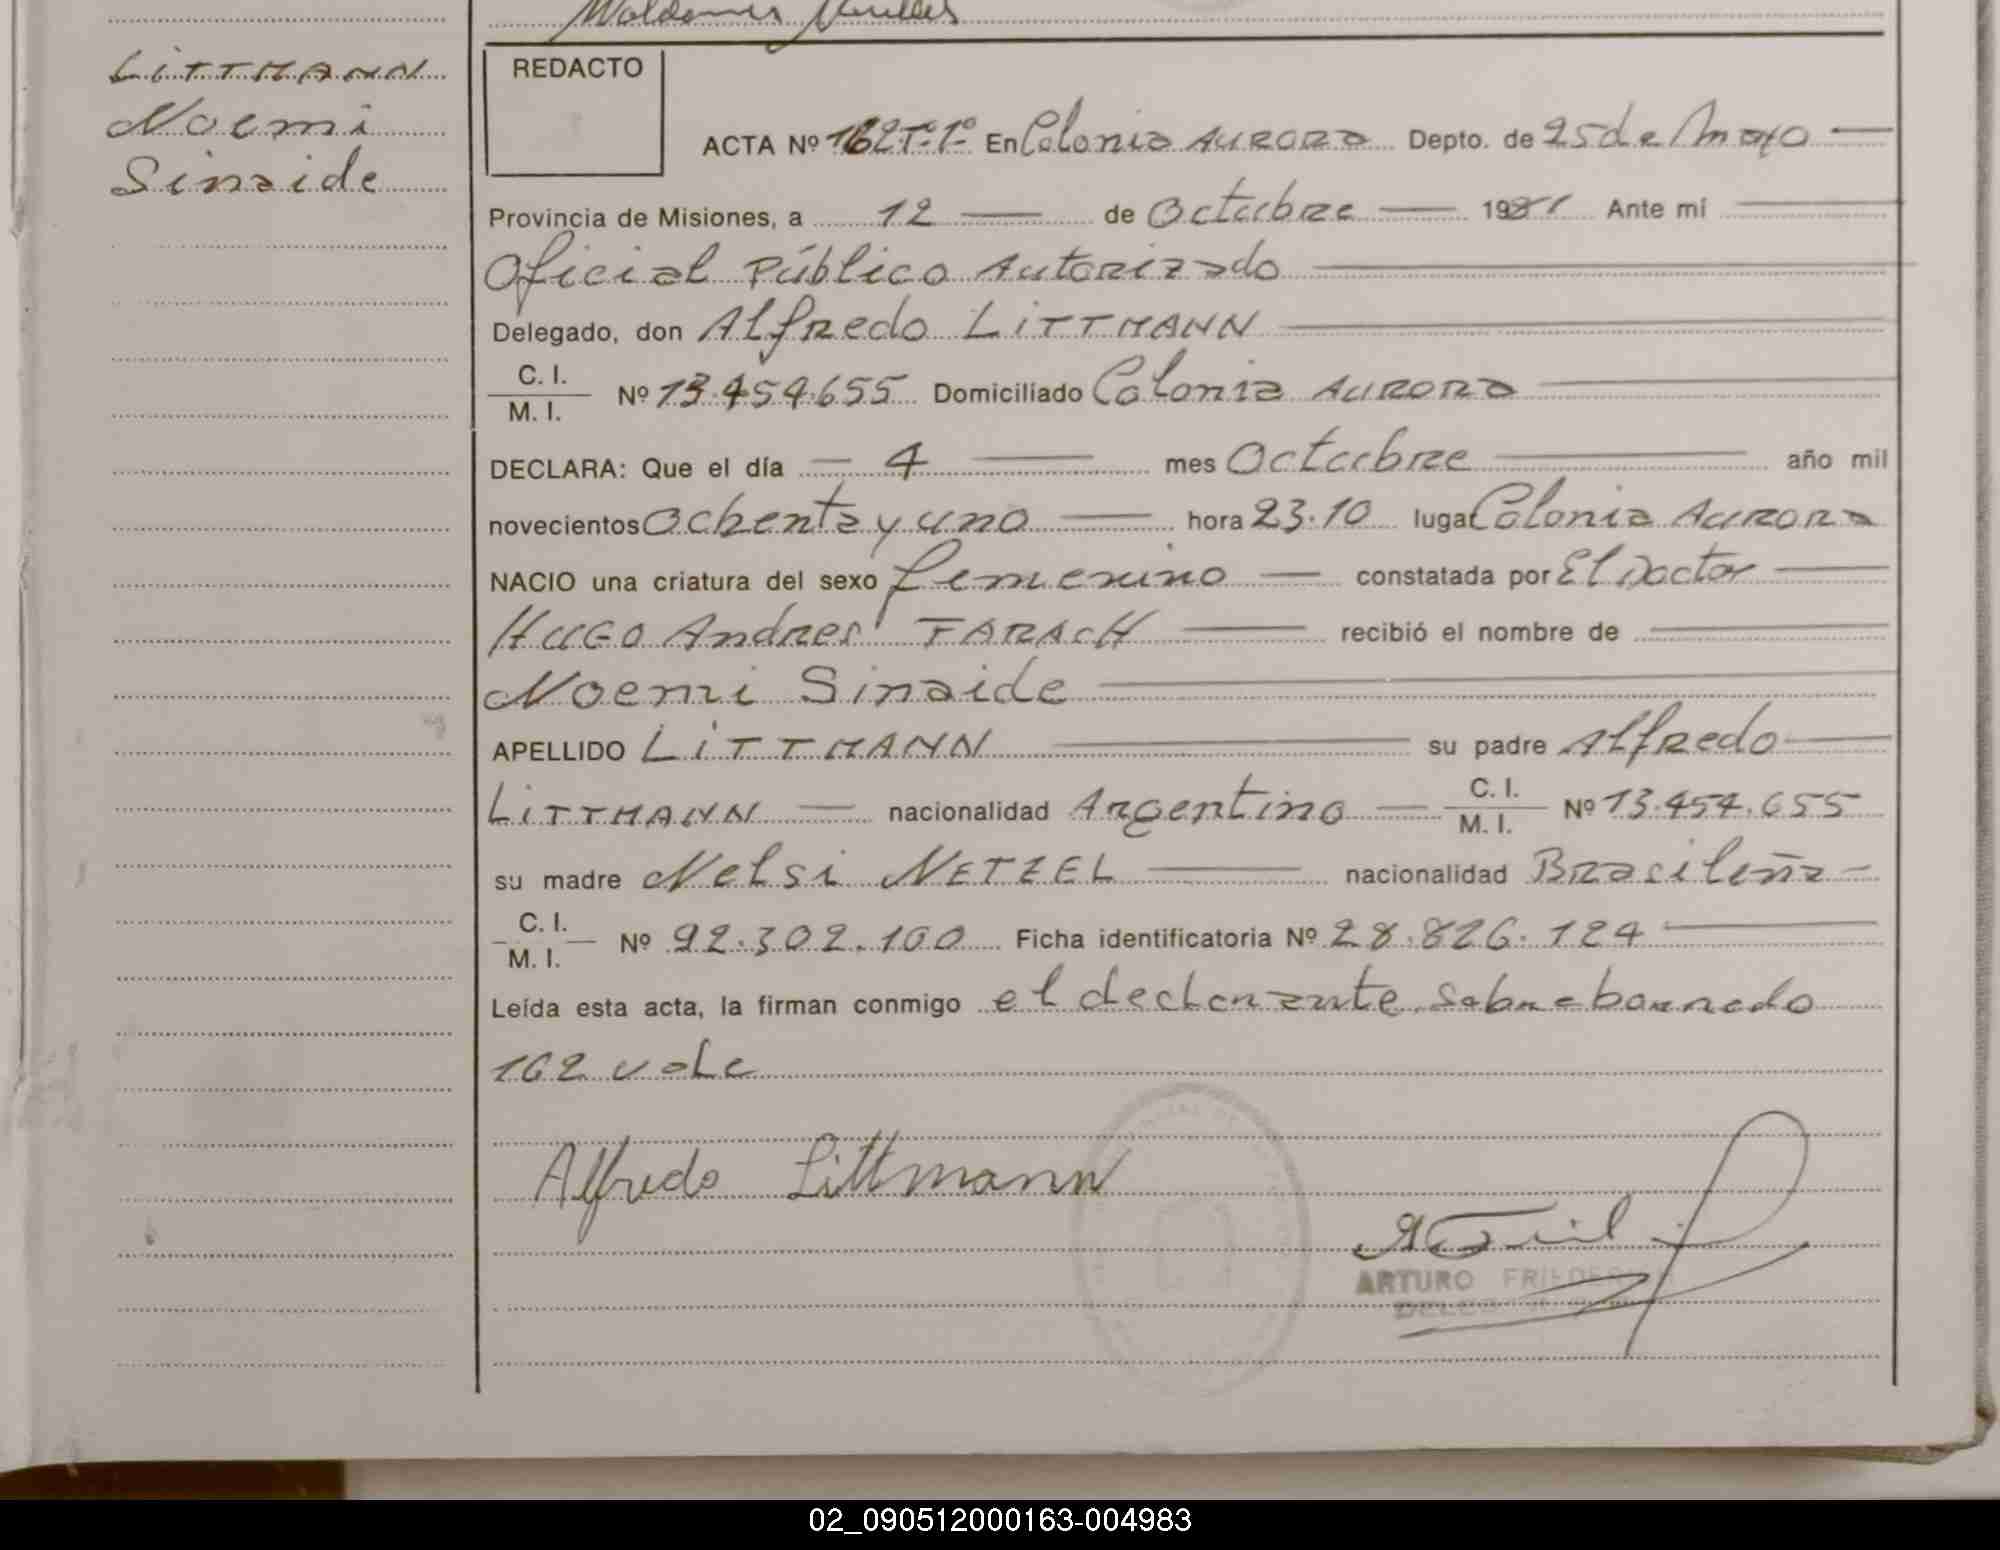 LITTMANN
Noemi
Sinaide
REDACTO
ACTA Nº 162 Tº 1º En Colonia Aurora Depto. de 25 de Mayo
Provincia de Misiones, a 12 de Octubre 1981 Ante mi
Oficial Público Autorizado
Delegado, don Alfredo LITTMANN
C. I.
M. I. Nº 13.454.655 Domiciliado Colonia Aurora
DECLARA: Que el día 4 mes Octubre año mil
novecientos Ochenta y uno hora 23.10 lugar Colonia Aurora
NACIO una criatura del sexo femenino constatada por El Doctor
Hugo Andres FARACH recibió el nombre de
Noemi Sinaide
APELLIDO LITTMANN su padre Alfredo
LITTMANN nacionalidad Argentino C. I. M. I. Nº 13.454.655
su madre Nelsi NETZEL nacionalidad Brasileña
C. I.
M. I. Nº 92.302.100 Ficha identificatoria Nº 28.826.124
Leída esta acta, la firman conmigo el declarante sobreborrado
162 vale
Alfredo Littmann
ARTURO
02_090512000163-004983